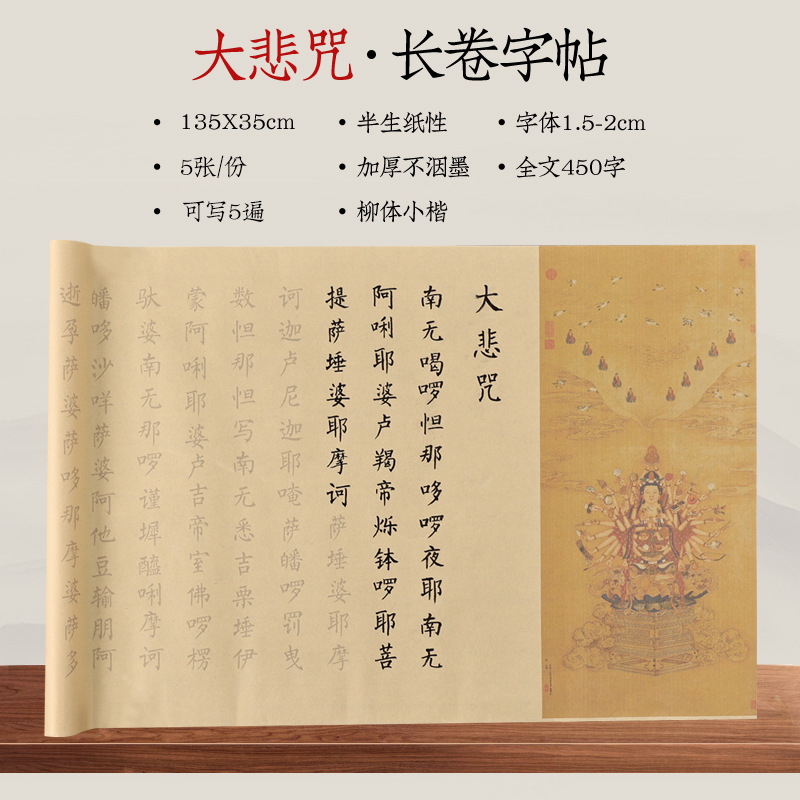 大悲咒·长卷字帖
• 135X35cm • 半生纸性 • 字体1.5-2cm
• 5张/份 • 加厚不洇墨 • 全文450字
• 可写5遍 • 柳体小楷
大悲咒
南无喝啰怛那哆啰夜耶南无
阿唎耶婆卢羯帝烁钵啰耶菩
提萨埵婆耶摩诃萨埵婆耶摩
诃迦卢尼迦耶唵萨皤啰罚曳
数怛那怛写南无悉吉栗埵伊
蒙阿唎耶婆卢吉帝室佛啰楞
驮婆南无那啰谨墀醯唎摩诃
皤哆沙咩萨婆阿他豆输朋阿
逝孕萨婆萨哆那摩婆萨多